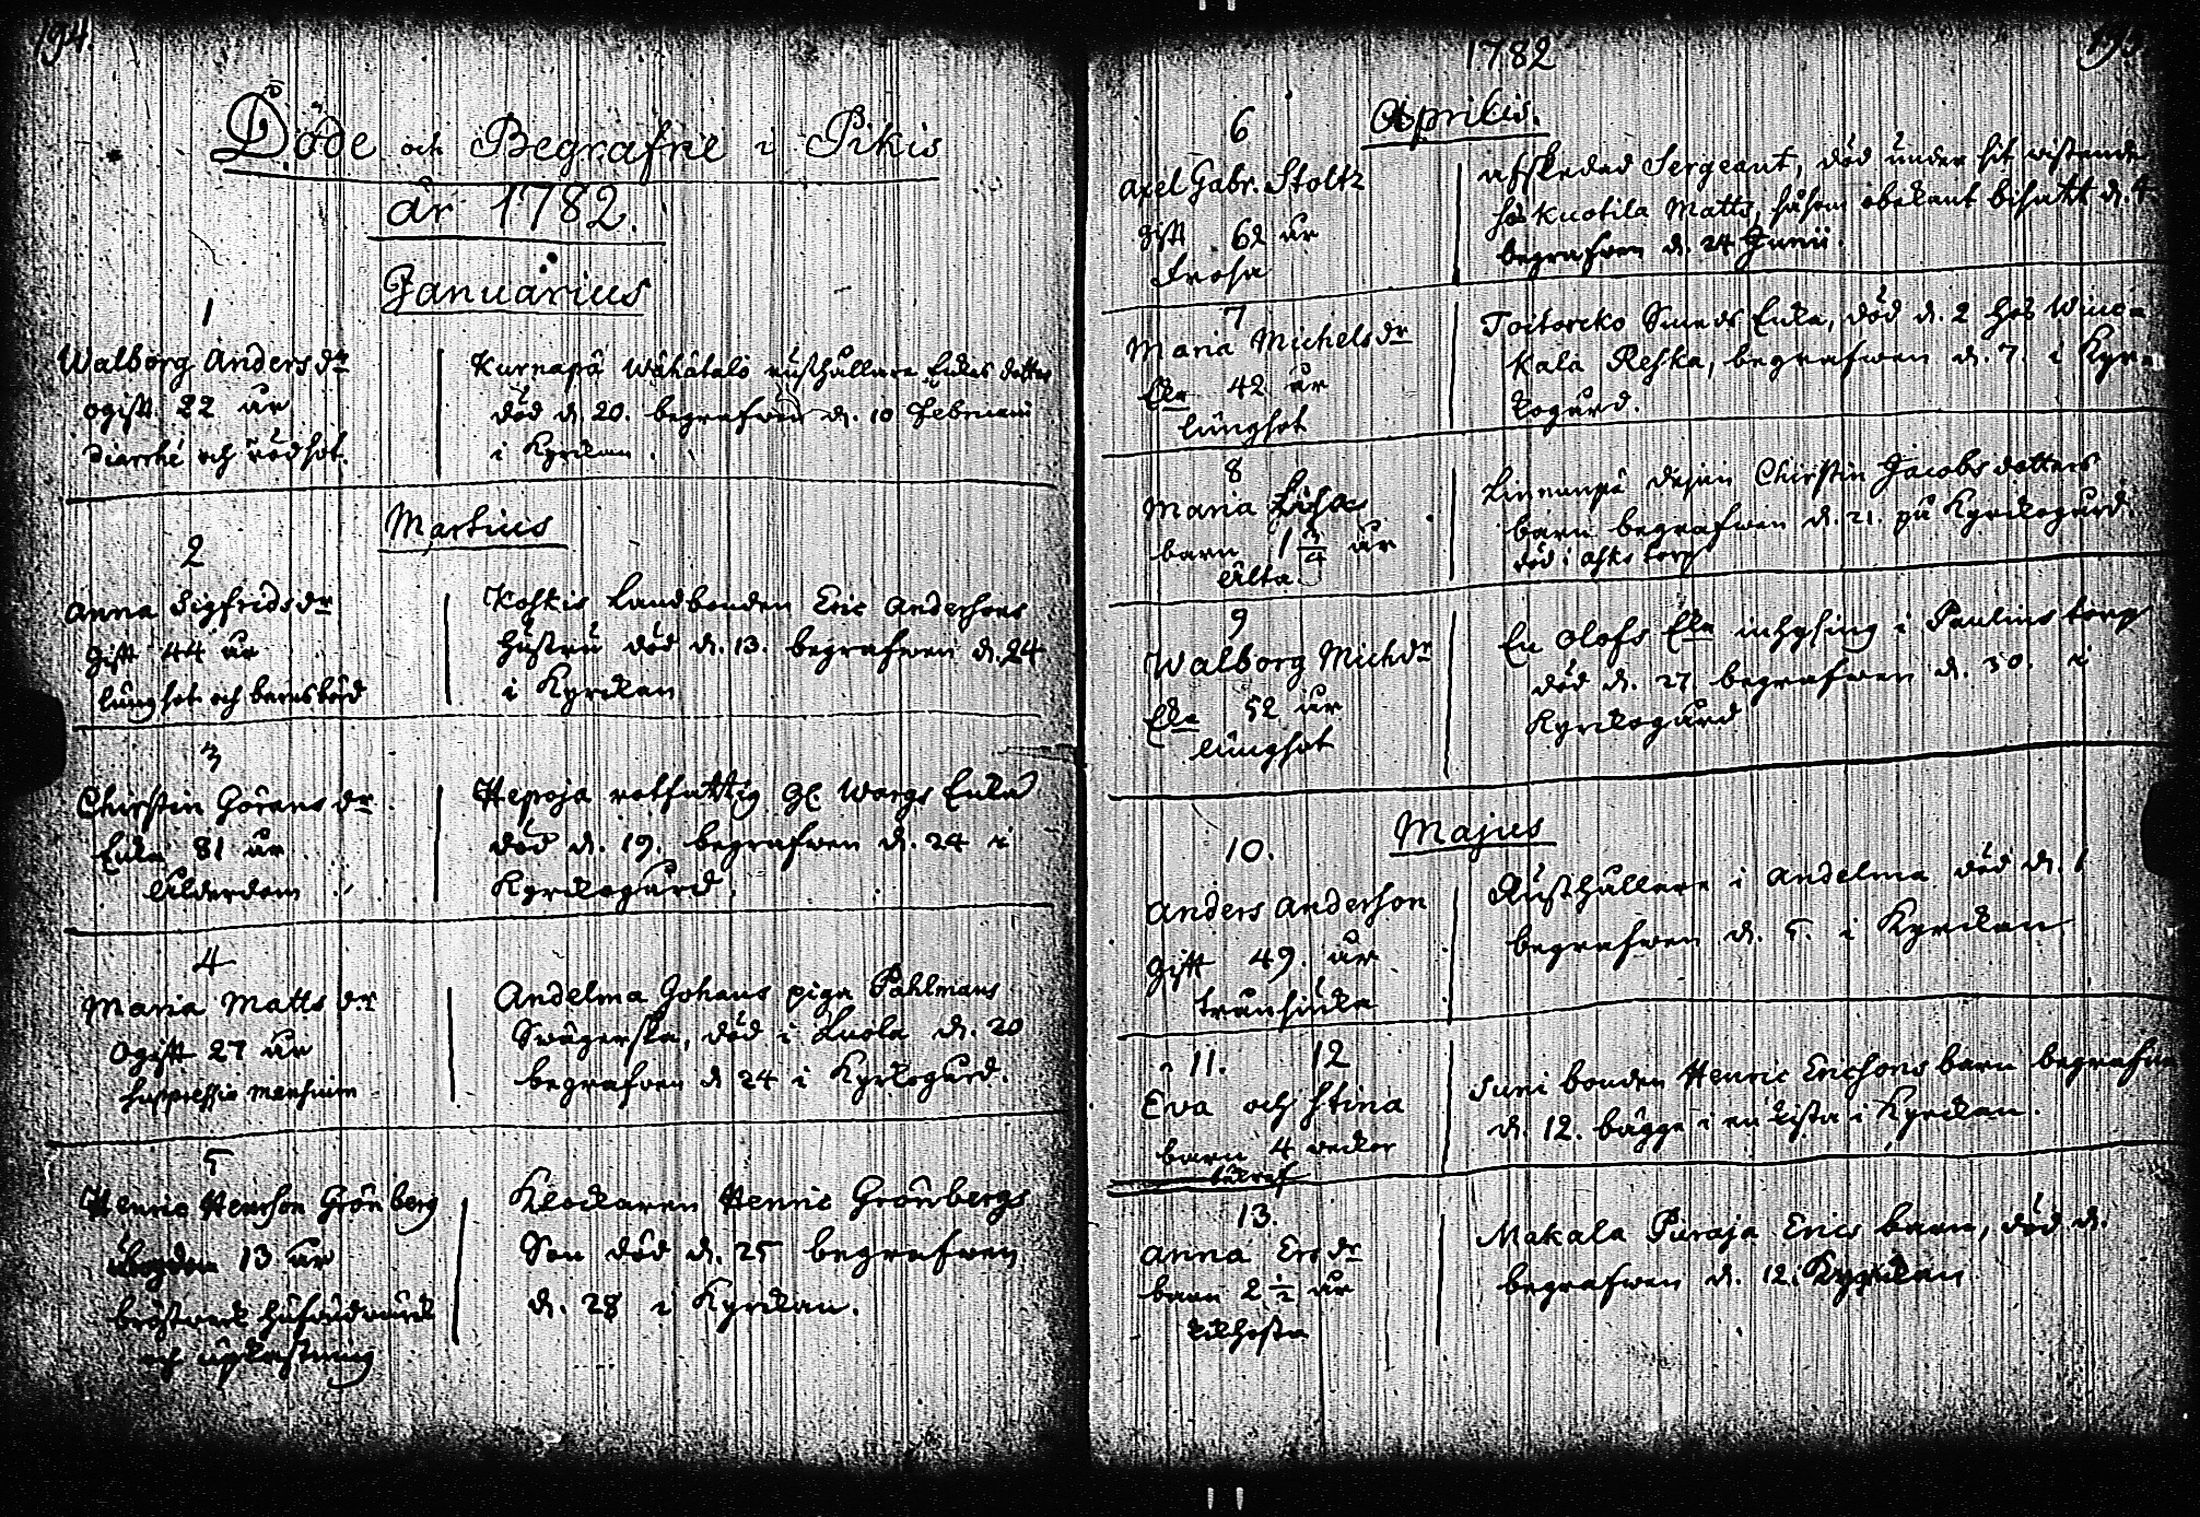 194.
Döde och Begrafne i Pikis
år 1782.
Januarius
1
Walborg Andersdr
ogift 22 år
Diarrhé och rödsot.
Kurnapä Wähätalo rusthållare Enkas dotter
död d. 20. begrafwen d. 10 Februarii
i Kyrkan.
Martius
2
Anna Sigfridsdr
gift 44 år
lungsot och barnsbörd
Koskis Landbonden Eric Andersons
hustru död d. 13. begrafwen d. 24
i Kyrckan
3
Chirstin Görans dr.
Enka 81 år
Ålderdom
Hepoja rotfattig Gl. Wargs Enka
död d. 19. begrafwen d. 24 i
Kyrckogård.
4
Maria Matts dr
Ogift 27 år
suppressio mensium
Andelma Johans piga Pahlmans
Swägerska, död i Luola d. 20
begrafwen d 24 i Kyrkogård.
5
Henric Henrson Grönberg
13 år
bröstwerk hufwudwärk
och upkastning
Klockaren Henric Grönbergs
Son död d. 25 begrafwen
d. 28 i Kyrckan.
1782
Aprilis.
6
Axel Gabr. Stoltz
gift 62 år
frosa
afskedad Sergeant, död under sit wistande
hos Kuotila Matts, såsom obekant bisatt d. 4.
begrafwen d. 24 Junii.
7
Maria Michelsdr
Eka 42 år
lungsot
Toitoreko Smeds Enka, död d. 2 hos
kala Reska, begrafwen d. 7. i Kyrc
kogård.
8
Maria Lisa
barn 1 3/4 år
Älta
Linnunpä Chirstin Jacobsdotters
barn begrafwen d. 21. på Kyrckogård.
död i torp
9
Walborg Michdr
Eka 52 år
lungsot
En Olofs Eka inhysing i Paulins torp
död d. 27 begrafwen d. 30. i
Kyrckogård
Majus
10.
Anders Anderson
gift 49. år
transiuka
Rusthållare i Andelma död d. 1
begrafwen d. 5. i Kyrckan
11. 12
Eva och Stina
barn 4 weckor
Suni bonden Henric Ericsons barn begrafne
d. 12. bägge i en kista i Kyrckan.
13.
Anna Ersdr
barn 2 1/2 år
kikhosta
Makala Puraja Erics barn, död d.
begrafwen d. 12. i Kyrckan